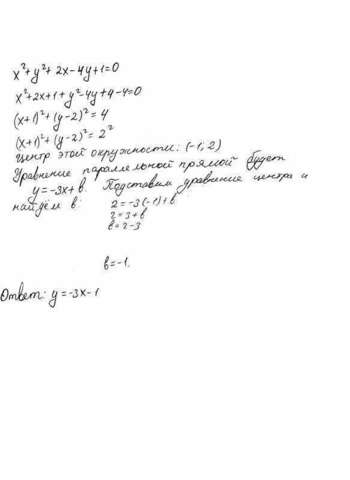 x²+y²+2x-4y+1=0
x²+2x+1+y²-4y+4-4=0
(x+1)²+(y-2)²=4
(x+1)²+(y-2)²=2²
Центр этой окружности: (-1; 2)
Уравнение параллельной прямой будет
y=-3x+b. Подставим уравнение центра и
найдём b: 2=-3(-1)+b
2=3+b
b=2-3
b=-1.
Ответ: y=-3x-1